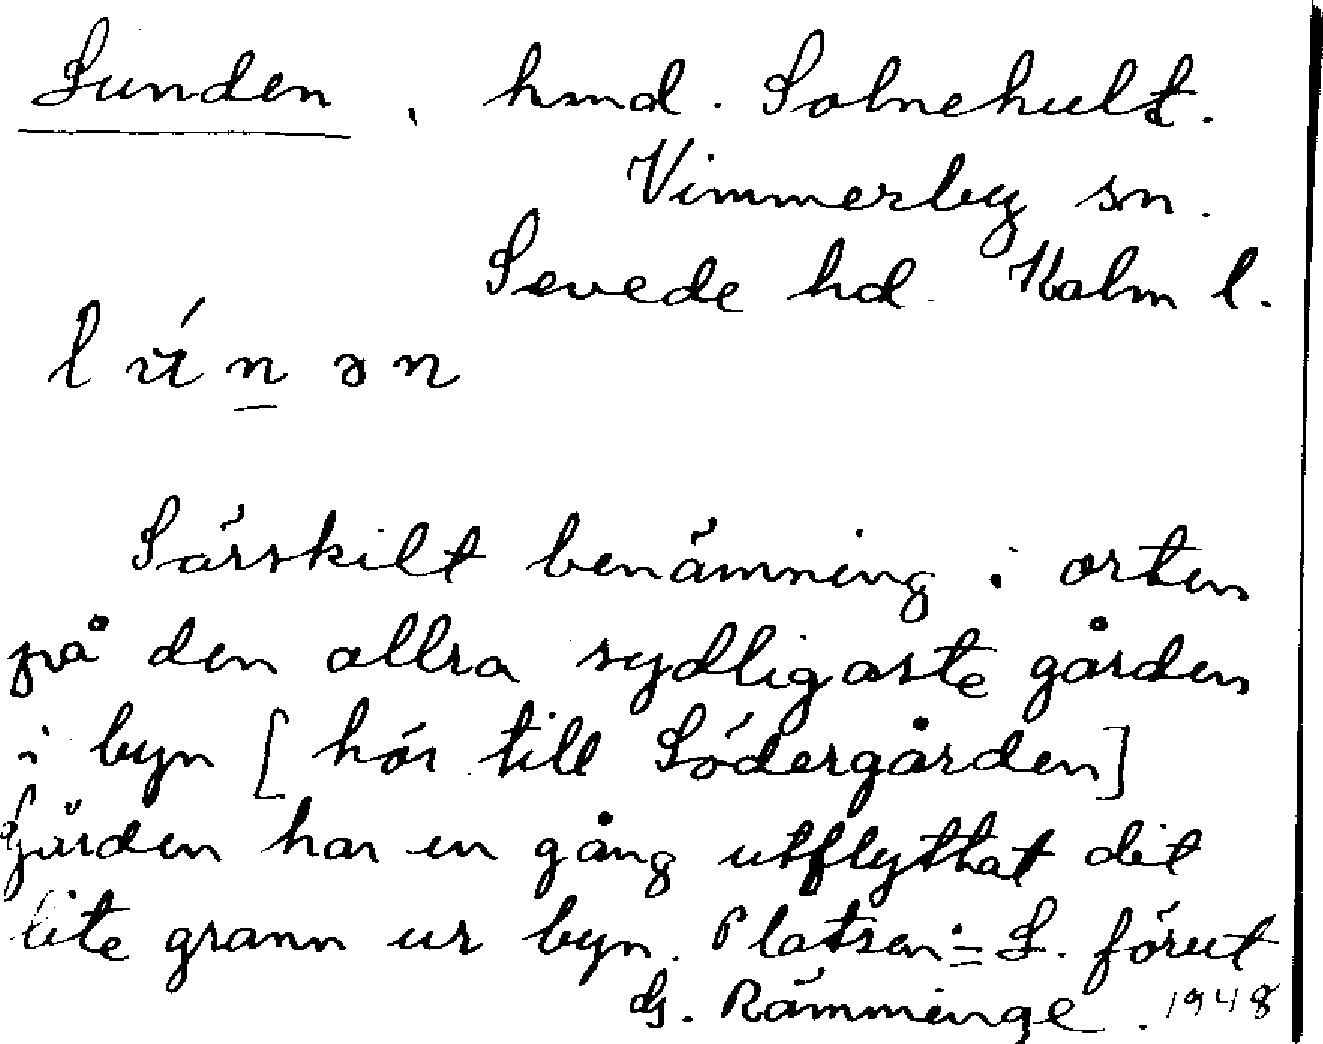 Lunden, hmd. Solnehult.
Vimmerby sn.
Sevede hd. Kalm l.
lúnən
Särskilt benämning i orten
på den allra sydligaste gården
i byn [hör till Södergården]
Gården har en gång utflyttat dit
lite grann ur byn. Platsen = L. förut
G. Rämminge. 1948